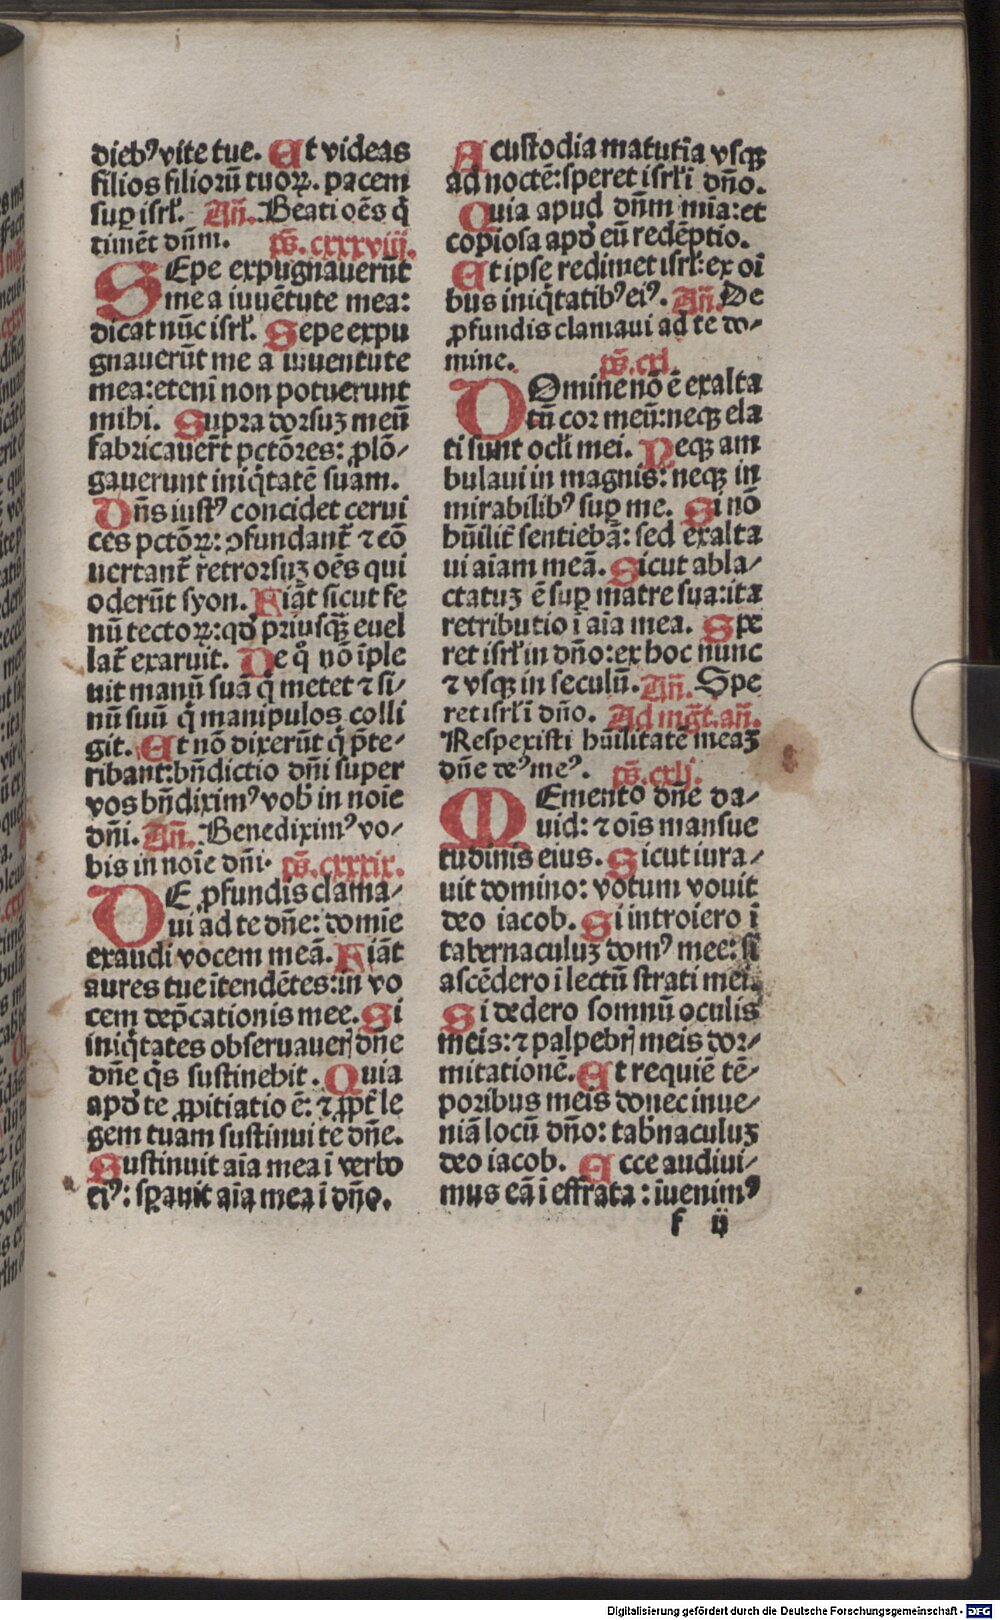 diebꝰ vite tue. Et videas
filios filioꝝ̄ tuoꝝ. pacem
sup̱ isrl̕. Añ. Beati oēs q̄
timēt dn̄m. ps̄. cxxxviij.
SEpe expugnauerūt
me a iuuētute mea:
dicat nūc isrl̕. Sepe expu
gnauerūt me a iuuentute
mea: etenī non potuerunt
mihi. Supra dorsuꝫ meū
fabricauer̄t pctōres: ꝓlō⸗
gauerunt iniq̄tatē suam.
Dn̄s iustꝰ concidet cerui
ces pctōꝝ: ꝯfundant̄ ⁊ cō
uertant̄ retrorsuꝫ oēs qui
oderūt syon. Fiāt sicut fe
nū tectoꝝ: qd̕ priusq̄ꝫ euel
lat̄ exaruit. De q̊ nō īple
uit manū suā q̄ metet ⁊ si⸗
nū suū q̄ manipulos colli
git. Et nō dixerūt q̄ p̄te⸗
ribant: bn̄dictio dn̄i super
vos bn̄diximꝰ vob̕ in noīe
dn̄i. Añ. Benediximꝰ vo⸗
bis in noīe dn̄i. ps̄. cxxxix.
DE ꝓfundis clama⸗
ui ad te dn̄e: domīe
exaudi vocem meā. Fiāt
aures tue ītendētes: in vo
cem dep̄cationis mee. Si
iniq̄tates obseruauerꝭ dn̄e
dn̄e q̄s sustinebit. Quia
apd̕ te ꝓpitiatio ē: ⁊ ꝓpt̄ le
gem tuam sustinui te dn̄e.
Sustinuit aīa mea ī verbo
eiꝰ: sꝑauit aīa mea ī dn̄o.
A custodia matutīa vsqꝫ
ad noctē: speret isrl̕ ī dn̄o.
Quia apud dn̄m mīa: et
copiosa apd̕ eū redēptio.
Et ipse redimet isrl̕: ex oī
bus iniq̄tatibꝰ eiꝰ. Añ. De
ꝓfundis clamaui ad te do⸗
mine. ps̄. cxl.
DOmine nō ē exalta
tū cor meū: neqꝫ ela
ti sunt ocl̕i mei. Neqꝫ am
bulaui in magnis: neqꝫ in
mirabilibꝰ sup̱ me. Si nō
hūilit̄ sentiebā: sed exalta
ui aīam meā. Sicut abla⸗
ctatuꝫ ē sup̱ matre sua: ita
retributio ī aīa mea. Spe
ret isrl̕ in dn̄o: ex hoc nunc
⁊ vsqꝫ in seculū. Añ. Spe
ret isrl̕ ī dn̄o. Ad mg̅t. añ.
Respexisti hūilitatē meaꝫ
dn̄e deꝰ meꝰ. ps̄. cxlj.
MEmento dn̄e da⸗
uid: ⁊ oīs mansue
tudinis eius. Sicut iura⸗
uit domino: votum vouit
deo iacob. Si introiero ī
tabernaculuꝫ domꝰ mee: si
ascēdero ī lectū strati mei.
Si dedero somnū oculis
meis: ⁊ palpebrꝭ meis dor⸗
mitationē. Et requiē tē⸗
poribus meis donec inue⸗
niā locū dn̄o: tab̄naculuꝫ
deo iacob. Ecce audiui⸗
mus eā ī effrata: īuenimꝰ
f ij
Digitalisierung gefördert durch die Deutsche Forschungsgemeinschaft - DFG